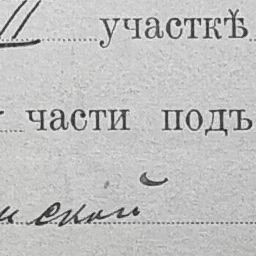 II участкѣ
части подъ
ской